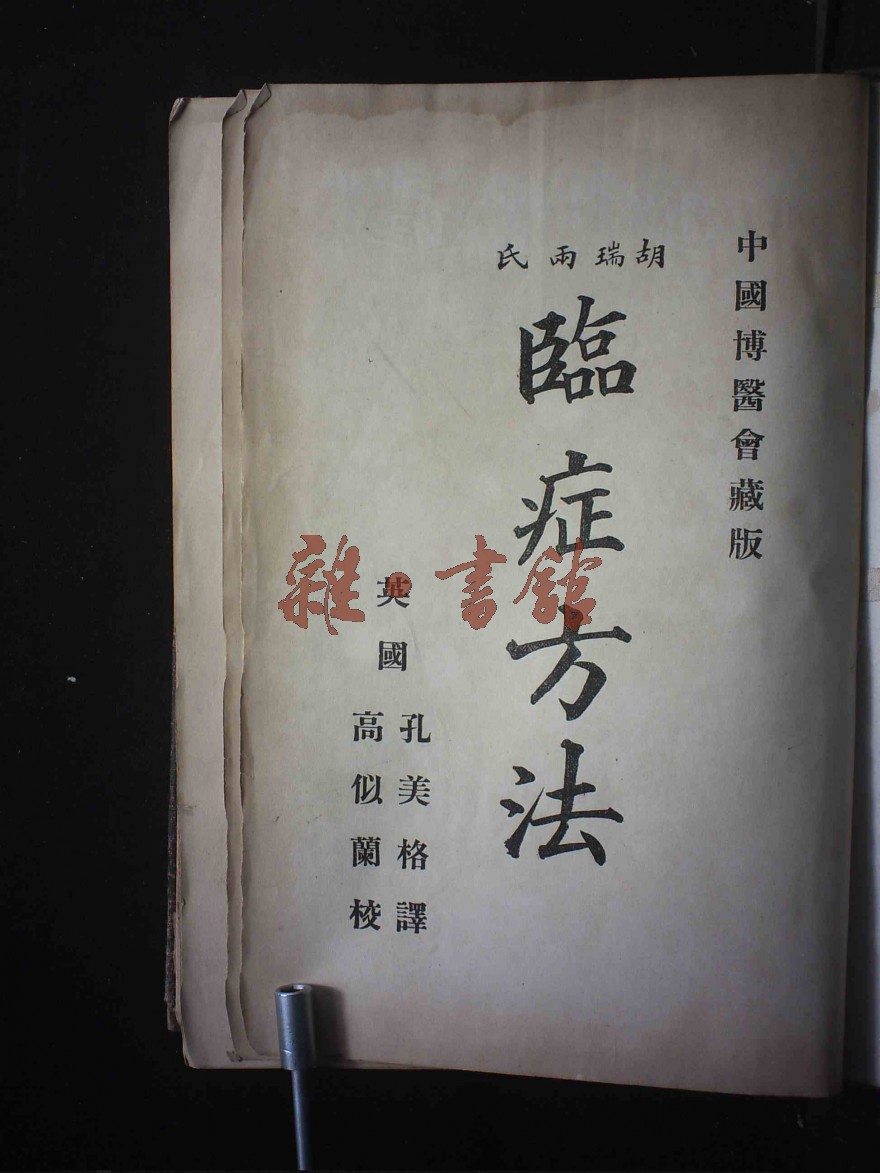 中國博醫會藏版
胡瑞兩氏
臨症方法
英國
孔美格譯
高似蘭校
雜·書館